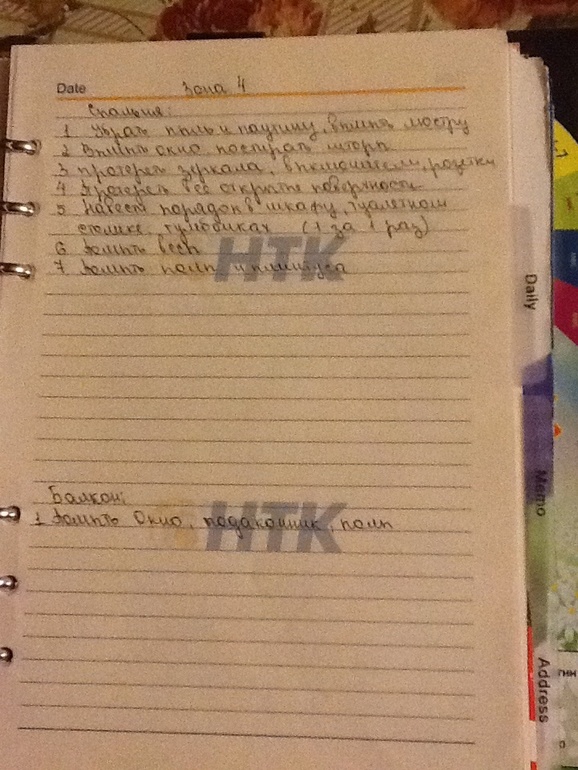 Date Зона 4
Спальня:
1 Убрать пыль и паутину, вымыть люстру
2 Вымыть окно постирать шторы
3 протереть зеркала, выключатели, розетки
4 Протереть все открытые поверхности
5 Навести порядок в шкафу, туалетном
столике, тумбочках (1 за 1 раз)
6 Помыть
7 Помыть полы и плинтуса
НТК
Балкон:
1 Помыть Окно, подоконник, полы
НТК
Daily
Memo
Address